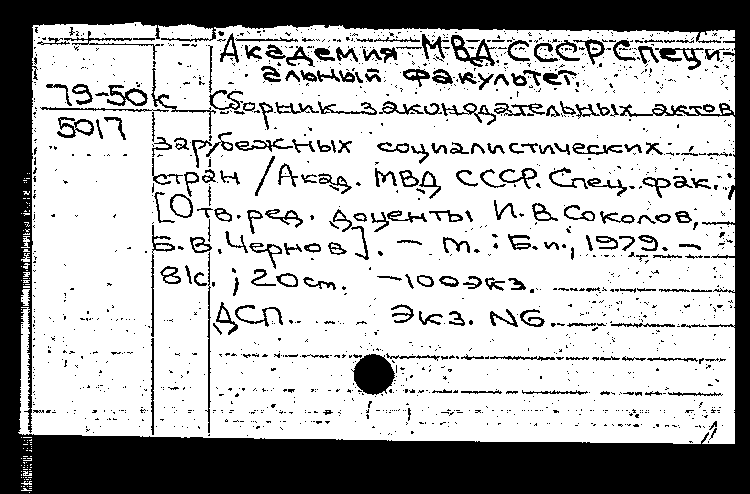 Академия МВД СССР Специ-
альный факультет.
79-50к Сборник законодательных актов
5017
зарубежных социалистических
стран / Акад. МВД СССР. Спец. фак.;
[Отв. ред. доценты И.В. Соколов,
Б.В. Чернов]. - М.: Б.и., 1979. -
81с.; 20 см. - 100 экз.
ДСП. Экз. N6